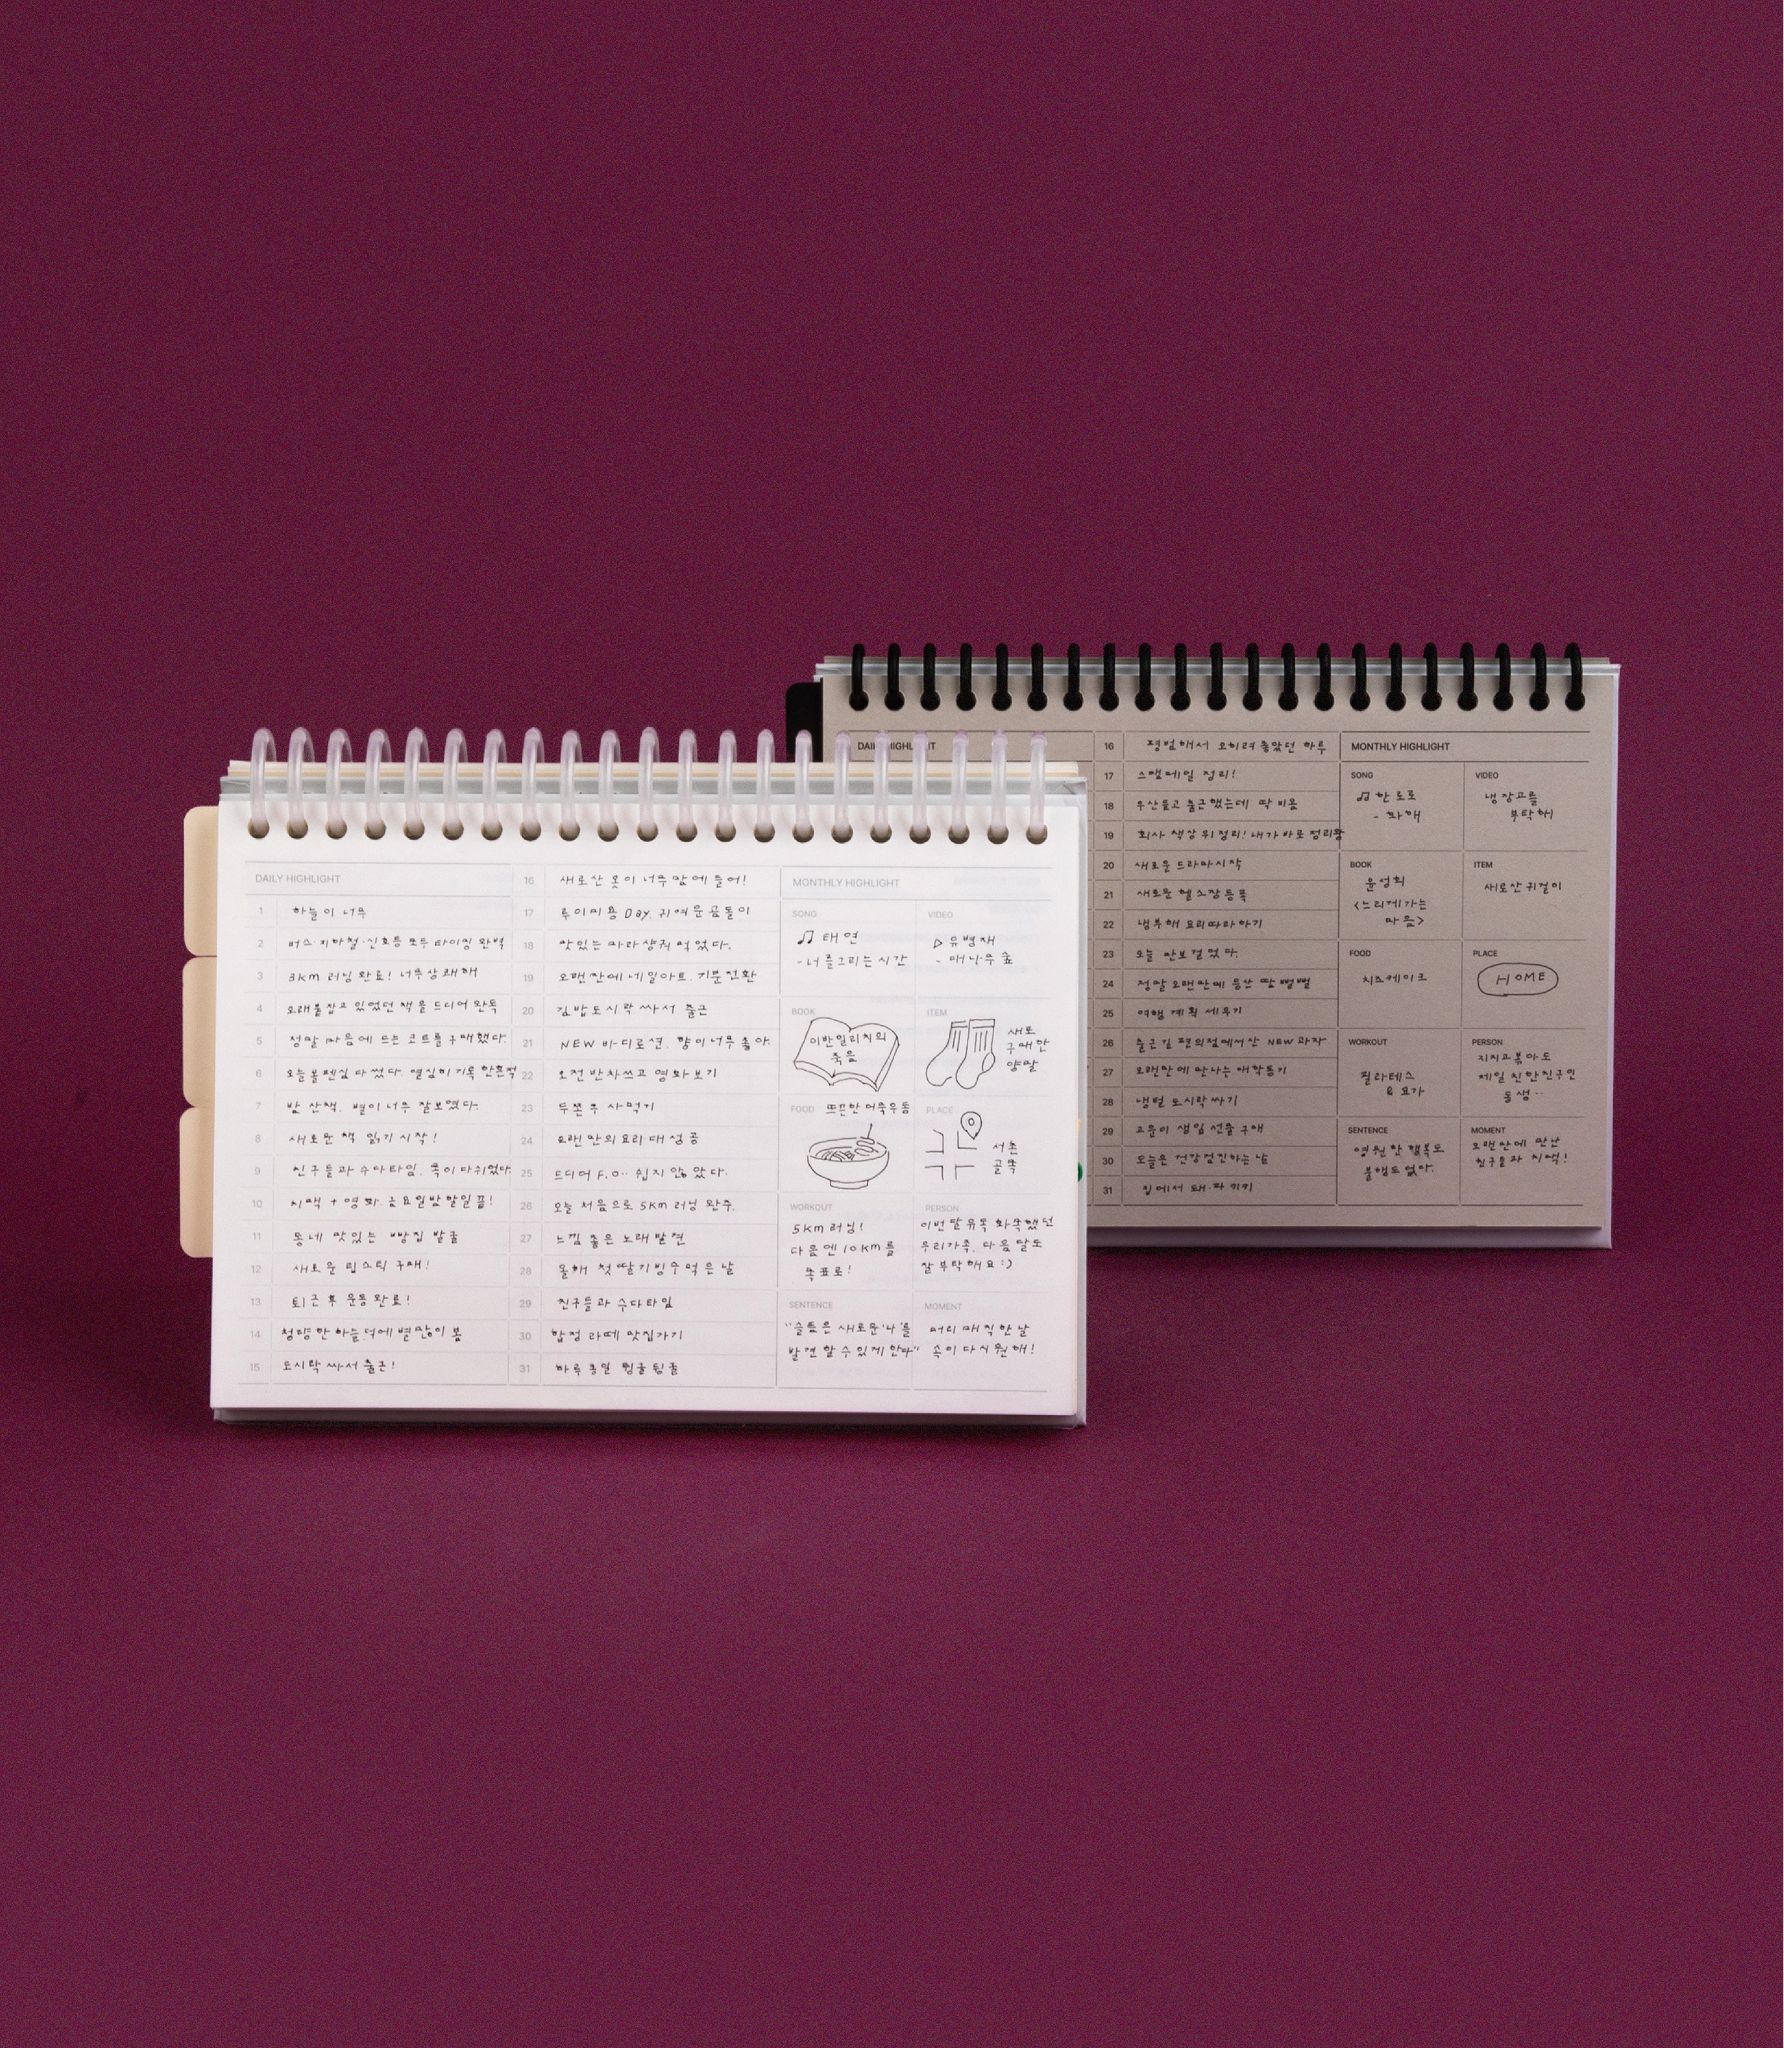 DAILY HIGHLIGHT
1 하늘이 너무
2 버스·지하철·신호등 모두 타이밍 완벽
3 3km 러닝 완료! 너무 상쾌해
4 오래 붙잡고 있었던 책을 드디어 완독
5 정말 마음에 드는 코트를 구매했다.
6 오늘 볼펜심 다 썼다. 열심히 기록한 흔적
7 밤 산책. 별이 너무 잘보였다.
8 새로운 책 읽기 시작!
9 친구들과 수다타임. 목이 다 쉬었다
10 치맥 + 영화. 금요일밤 할일 끝!
11 동네 맛있는 빵집 발굴
12 새로운 립스틱 구매!
13 퇴근 후 운동 완료!
14 청량한 하늘. 덕에 별 많이 봄
15 도시락 싸서 출근!
16 새로산 옷이 너무 맘에 들어!
17 루이미용 Day. 귀여운 곰돌이
18 맛있는 마라샹궈 먹었다.
19 오랜만에 네일아트. 기분전환
20 김밥도시락 싸서 출근
21 NEW 바디로션. 향이 너무 좋아.
22 오전 반차쓰고 영화보기
23 두쫀쿠 사먹기
24 오랜만의 요리 대성공
25 드디어 F.O·· 쉽지 않았다.
26 오늘 처음으로 5km 러닝 완주.
27 느낌 좋은 노래 발견
28 올해 첫 딸기빙수 먹은 날
29 친구들과 수다타임
30 합정 라떼 맛집가기
31 하루종일 뒹굴뒹굴
MONTHLY HIGHLIGHT
SONG
♫ 태연
- 너를그리는시간
VIDEO
▷ 유병재
- 매니우숲
BOOK
이반일리치의
죽음
ITEM
새로
구매한
양말
FOOD 뜨끈한 어묵우동
PLACE
서촌
골목
WORKOUT
5km 러닝!
다음엔 10km를
목표로!
PERSON
이번달 유독 화목했던
우리가족. 다음달도
잘 부탁해요 :)
SENTENCE
"슬픔은 새로운 '나'를
발견할 수 있게 한다"
MOMENT
머리 매직한날
속이 다 시원해!
DAILY HIGHLIGHT
16 평범해서 오히려 좋았던 하루
17 스팸메일 정리!
18 우산들고 출근했는데 딱 비옴
19 회사 책상 위 정리! 내가 바로 정리왕
20 새로운 드라마시작
21 새로운 헬스장등록
22 냉부해 요리따라하기
23 오늘 만보 걸었다.
24 정말 오랜만에 등산 땀 뻘뻘
25 여행 계획 세우기
26 출근길 편의점에서 산 NEW 과자
27 오랜만에 만나는 대학동기
28 냉털 도시락싸기
29 고운이 생일 선물 구매
30 오늘은 건강검진하는 날
31 집에서 돼·파 키키
MONTHLY HIGHLIGHT
SONG
♫ 한로로
- 화해
VIDEO
냉장고를
부탁해
BOOK
윤성희
<느리게가는
마음>
ITEM
새로산 귀걸이
FOOD
치즈케이크
PLACE
HOME
WORKOUT
필라테스
& 요가
PERSON
지지고볶아도
제일 친한친구인
동생··
SENTENCE
영원한 행복도
불행도 없다.
MOMENT
오랜만에 만난
친구들과 치맥!